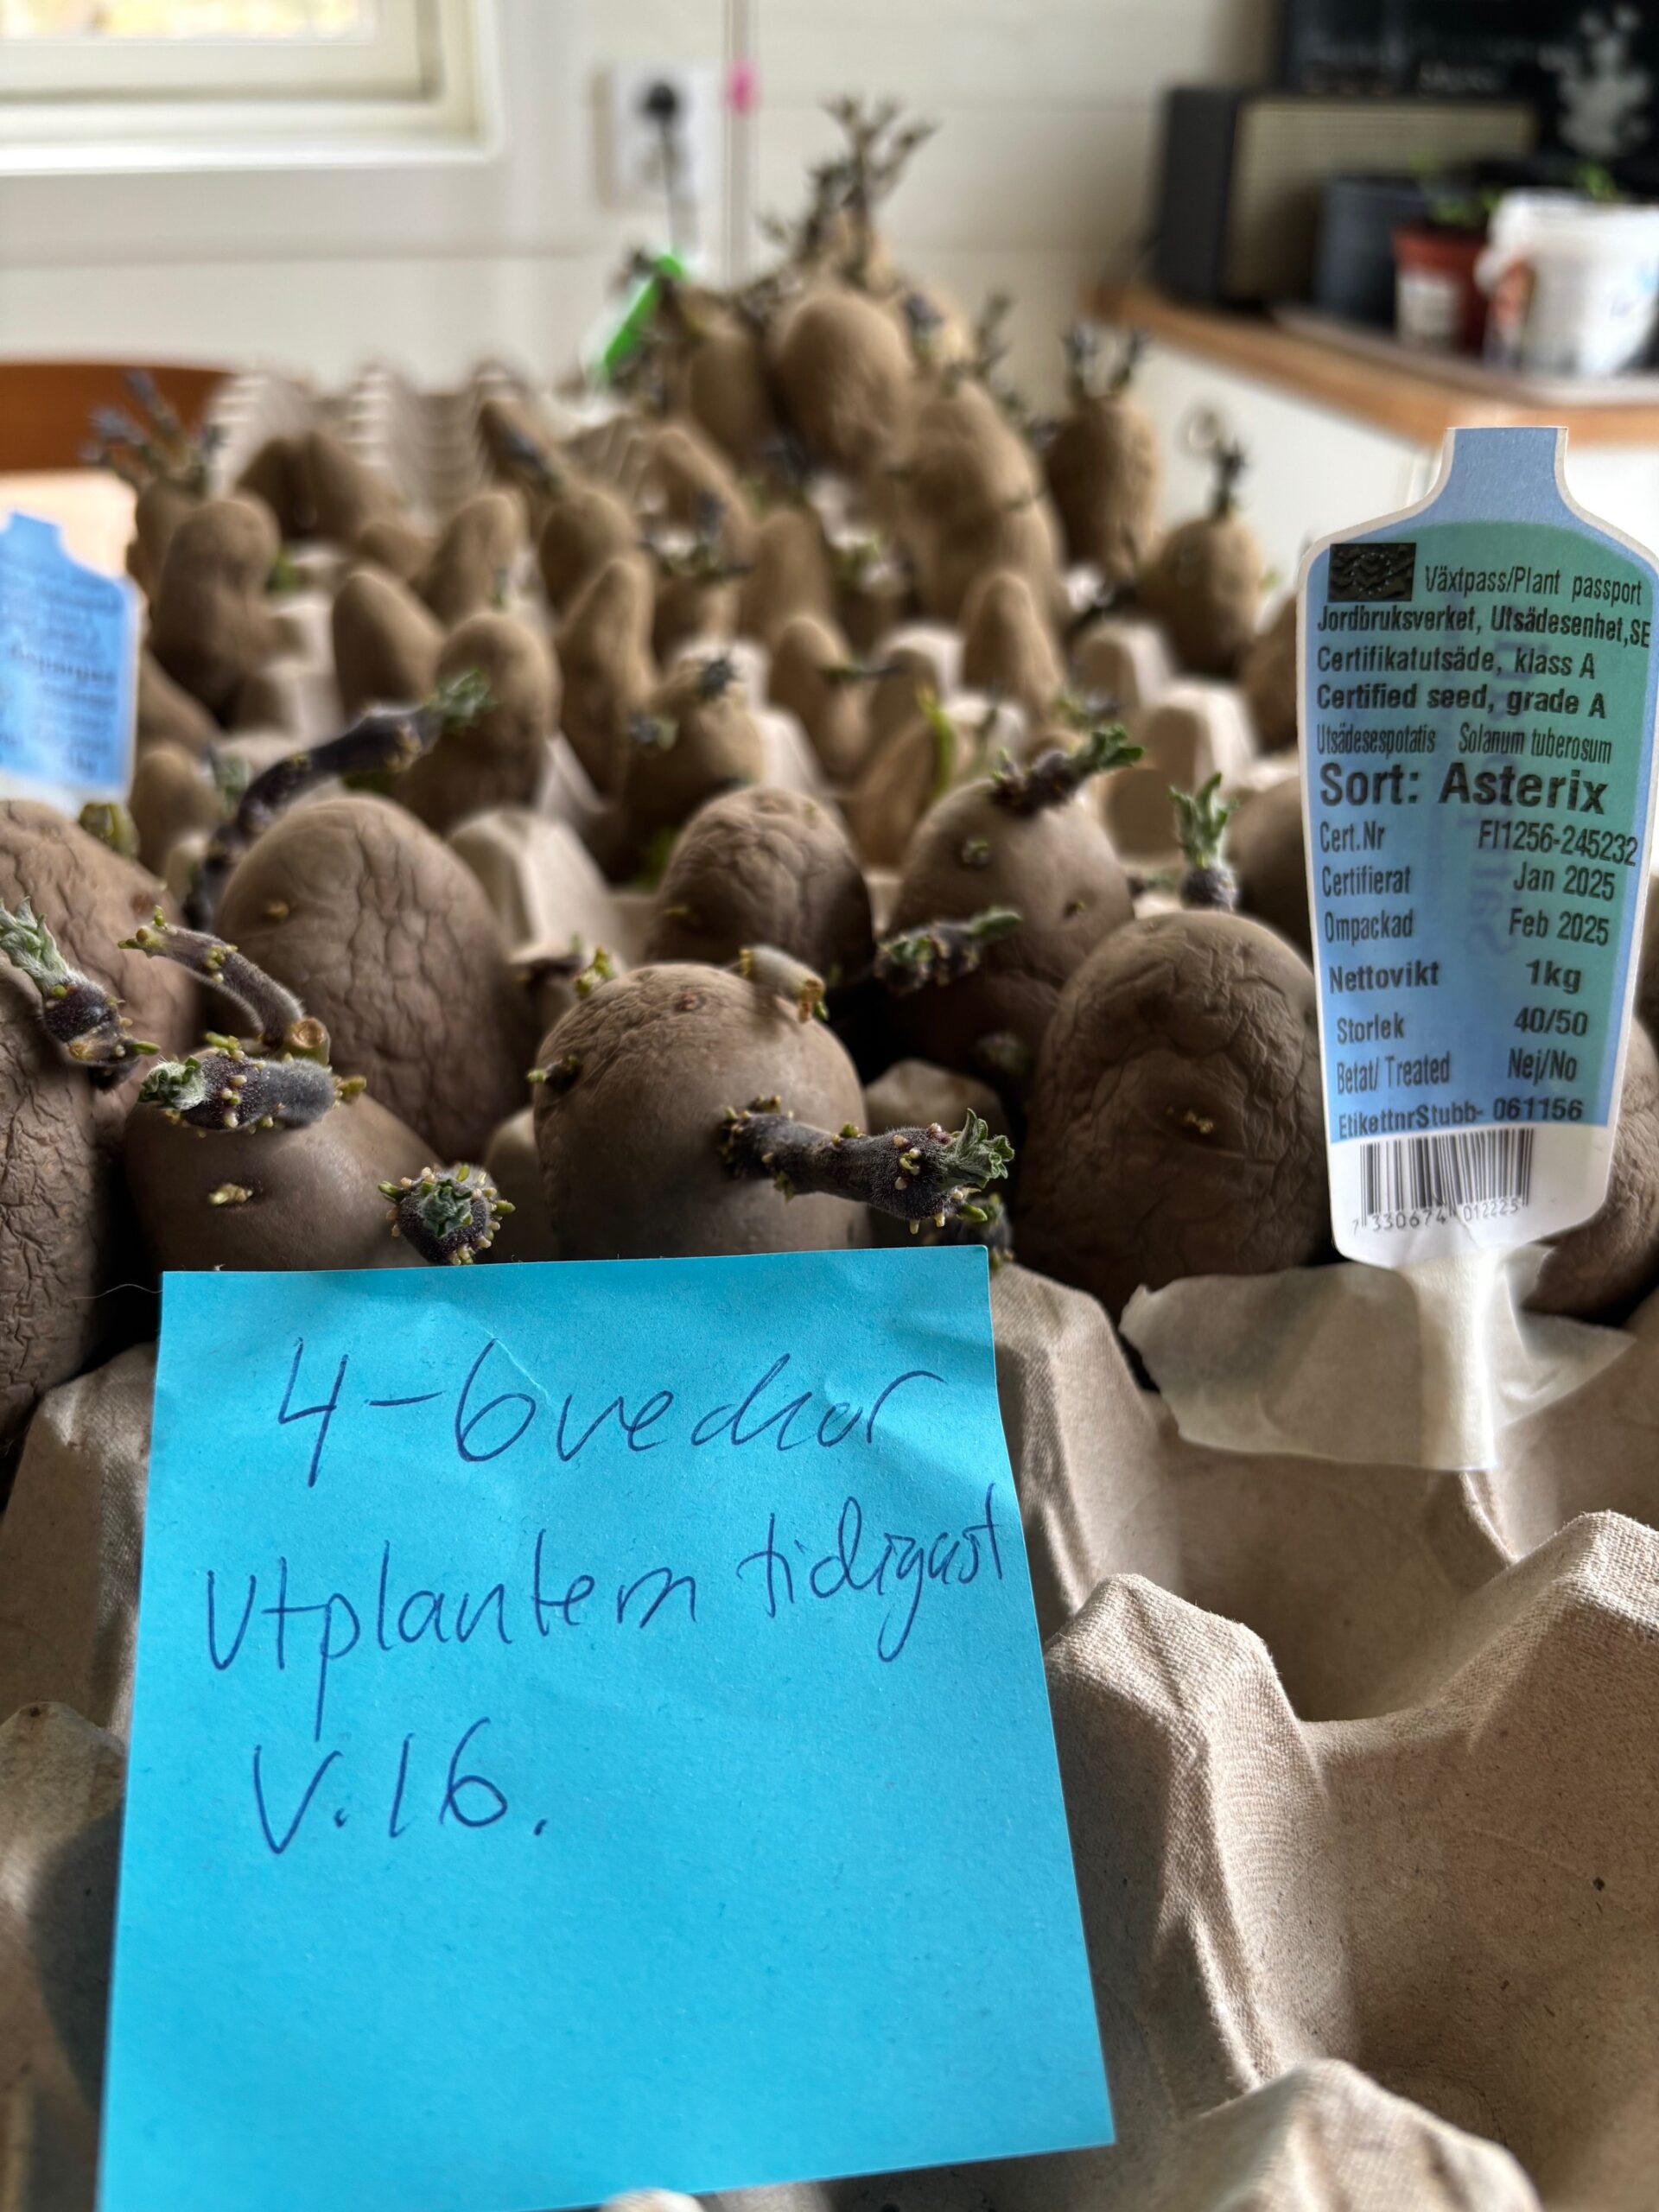 Växtpass/Plant passport
Jordbruksverket, Utsädesenhet,SE
Certifikatutsäde, klass A
Certified seed, grade A
Utsädesespotatis Solanum tuberosum
Sort: Asterix
Cert.Nr FI1256-245232
Certifierat Jan 2025
Ompackad Feb 2025
Nettovikt 1kg
Storlek 40/50
Betat/ Treated Nej/No
EtikettnrStubb- 061156
7 330674 012225
4-6 veckor
Utplantern tidigast
V.16.